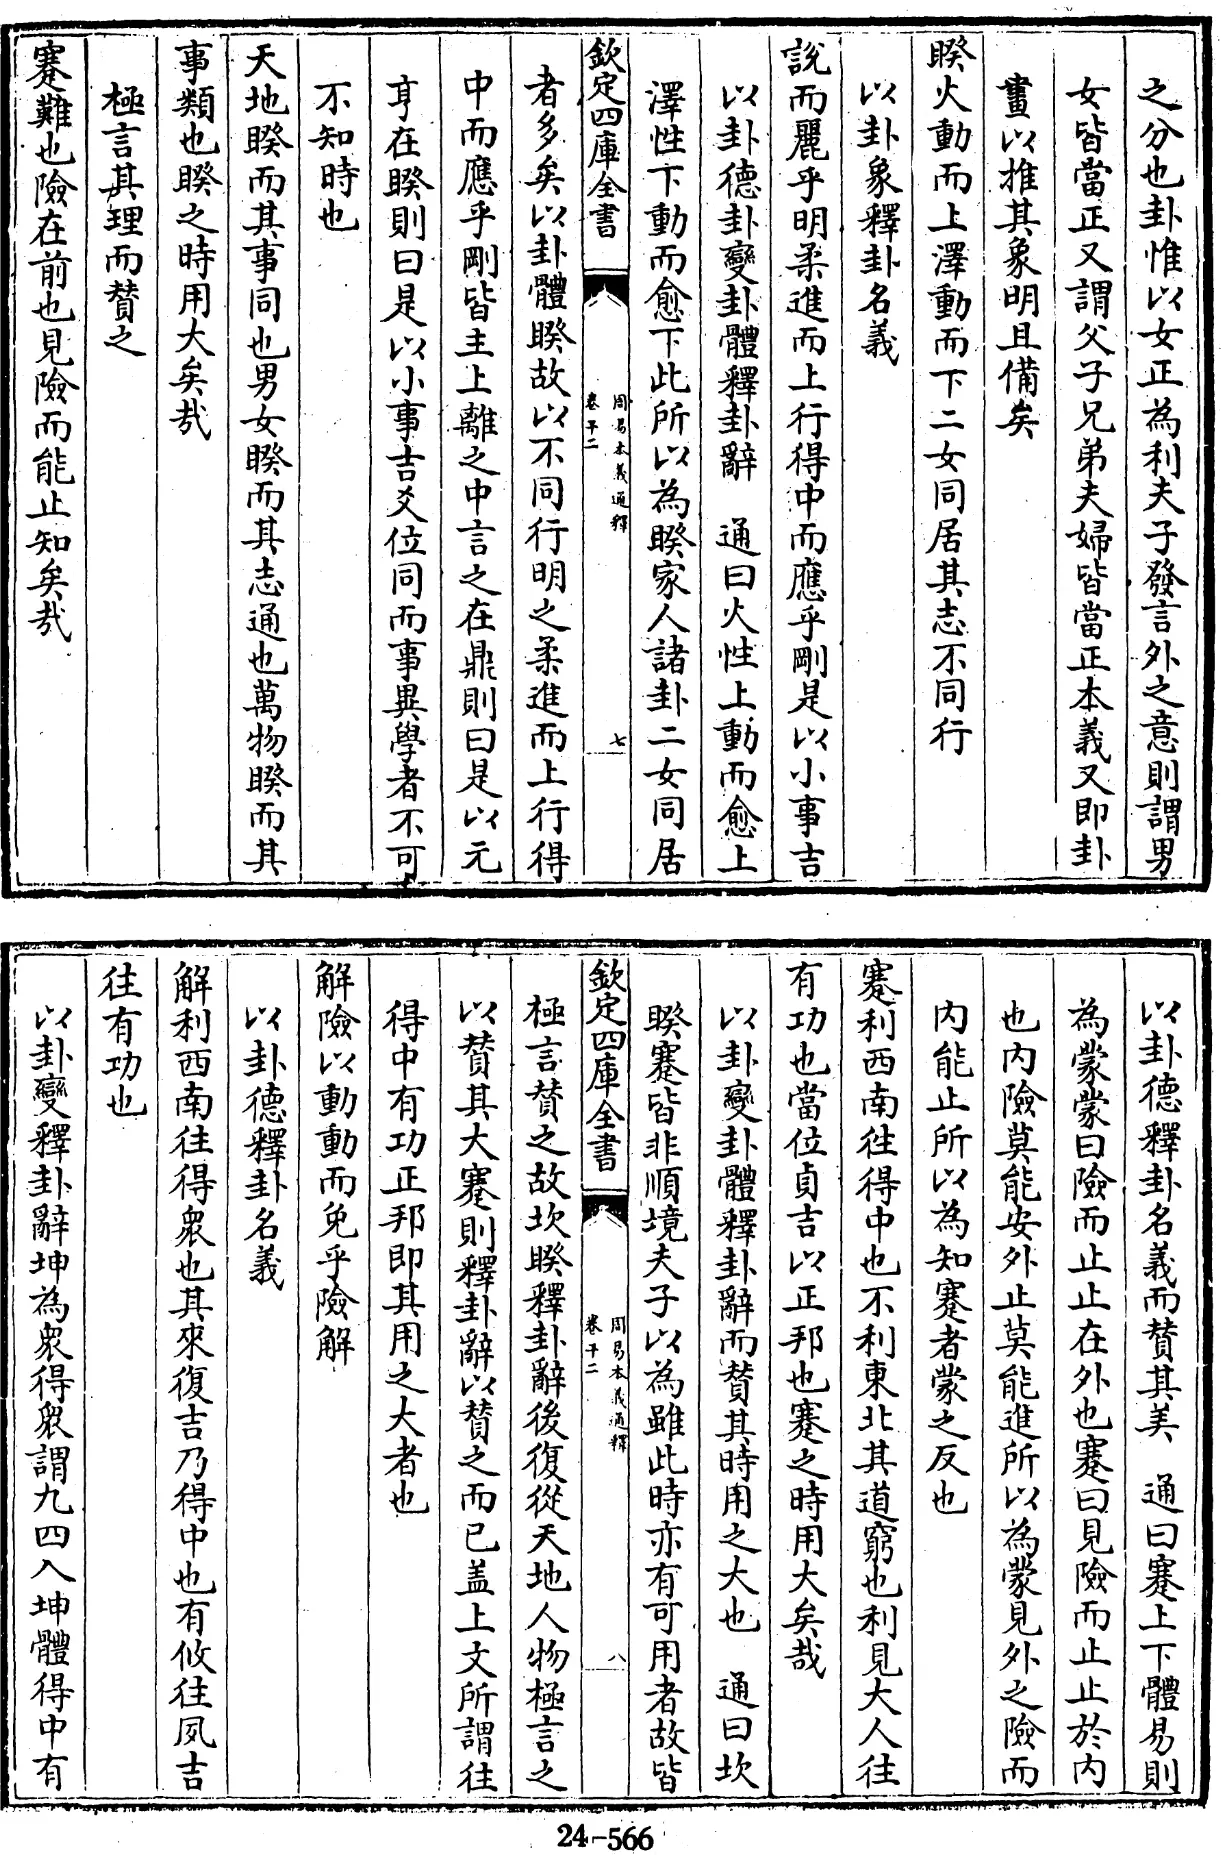 之分也卦惟以女正為利夫子發言外之意則謂男
女皆當正又謂父子兄弟夫婦皆當正本義又即卦
畫以推其象明且備矣
睽火動而上澤動而下二女同居其志不同行
以卦象釋卦名義
說而麗乎明柔進而上行得中而應乎剛是以小事吉
以卦德卦變卦體釋卦辭　通曰火性上動而愈上
澤性下動而愈下此所以為睽家人諸卦二女同居
欽定四庫全書
周易本義通釋
卷十二
七
者多矣以卦體睽故以不同行明之柔進而上行得
中而應乎剛皆主上離之中言之在鼎則曰是以元
亨在睽則曰是以小事吉爻位同而事異學者不可
不知時也
天地睽而其事同也男女睽而其志通也萬物睽而其
事類也睽之時用大矣哉
極言其理而贊之
蹇難也險在前也見險而能止知矣哉
以卦德釋卦名義而贊其美　通曰蹇上下體易則
為蒙蒙曰險而止止在外也蹇曰見險而止止於内
也内險莫能安外止莫能進所以為蒙見外之險而
内能止所以為知蹇者蒙之反也
蹇利西南往得中也不利東北其道窮也利見大人往
有功也當位貞吉以正邦也蹇之時用大矣哉
以卦變卦體釋卦辭而贊其時用之大也　通曰坎
睽蹇皆非順境夫子以為雖此時亦有可用者故皆
欽定四庫全書
周易本義通釋
卷十二
八
極言贊之故坎睽釋卦辭後復從天地人物極言之
以贊其大蹇則釋卦辭以贊之而已盖上文所謂往
得中有功正邦即其用之大者也
解險以動動而免乎險解
以卦德釋卦名義
解利西南往得衆也其來復吉乃得中也有攸往夙吉
往有功也
以卦變釋卦辭坤為衆得衆謂九四入坤體得中有
24-566